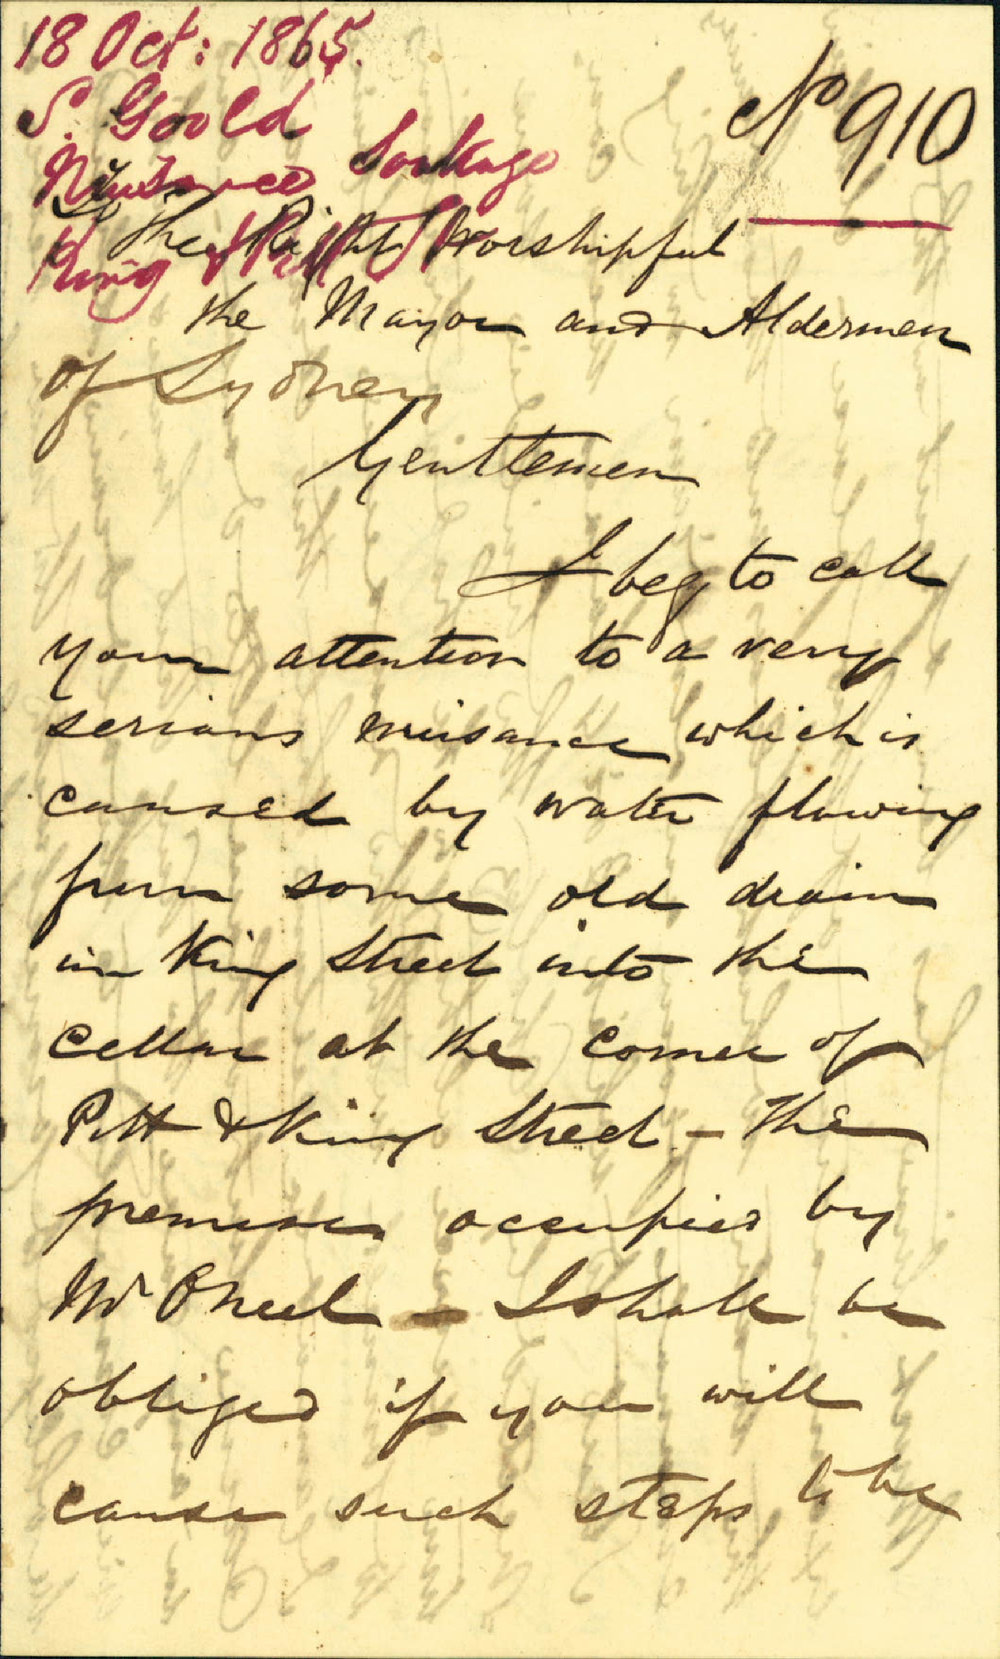 18 Oct: 1865.
S. Goold
Nuisance Soakage
King & Pitt St
No 910
To The Right Worshipful
the Mayor and Aldermen
of Sydney
Gentlemen
I beg to call
your attention to a very
serious nuisance which is
caused by water flowing
from some old drain
in King Street into the
cellar at the corner of
Pitt & King Street – The
premises occupied by
Mr O'Neil – I shall be
obliged if you will
cause such steps to be